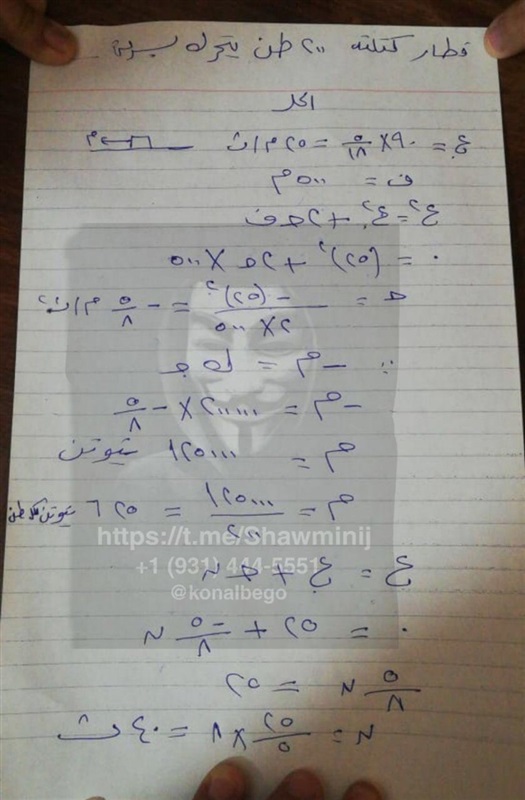 قطار كتلته ٢٠٠ طن يتحرك بسرعة
الحل
ع. = ٩٠ × ٥/١٨ = ٢٥ م/ث م
ف = ٥٠٠ م
ع² = ع.² + ٢ حـ ف
٠ = (٢٥)² + ٢ حـ × ٥٠٠
حـ = −(٢٥)²/٢ × ٥٠٠ = −٥/٨ م/ث²
∵ −م = ك حـ
−م = ٢٠٠٠٠٠ × −٥/٨
م = ١٢٥٠٠٠ نيوتن
م = ١٢٥٠٠٠/٢٠٠ = ٦٢٥ نيوتن لكل طن
https://t.me/Shawminij
+1 (931) 444-5551
@konalbego
ع = ع. + حـ ن
٠ = ٢٥ + −٥/٨ ن
٥/٨ ن = ٢٥
ن = ٢٥/٥ × ٨ = ٤٠ ث